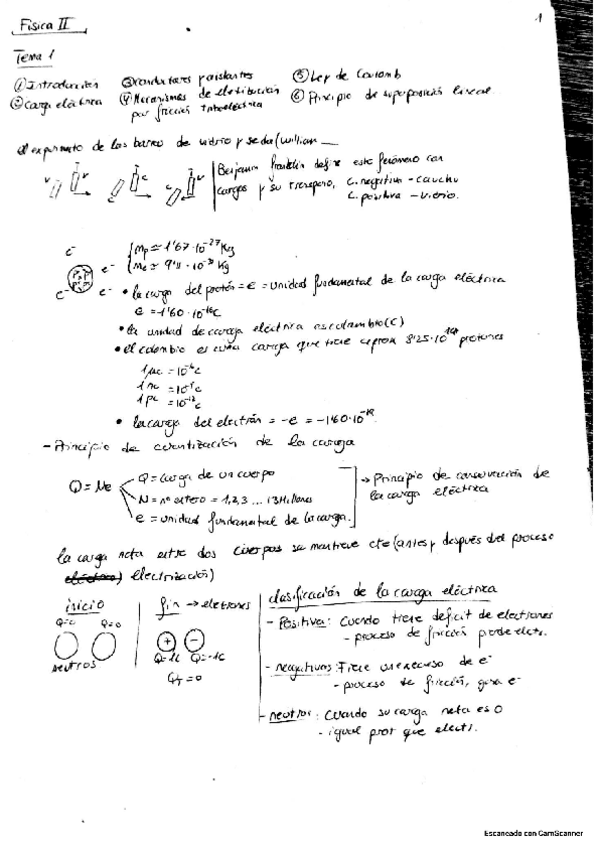 Física II
1
Tema 1
① Introducción ③ conductores y aislantes ⑤ Ley de Coulomb
② Carga eléctrica ④ Mecanismos de electrización por fricción ⑥ Principio de superposición lineal
El experimento de las barras de vidrio y seda (William
Benjamin Franklin define este fenómeno con
cargas y su C. negativa - caucho
C. positiva - vidrio.
V V C C V
e⁻
e⁻
e⁻ e⁻
Mp ≈ 1'67·10⁻²⁷ Kg
Me ≈ 9'11·10⁻³¹ Kg
• la carga del protón = e = unidad fundamental de la carga eléctrica
e = 1'60·10⁻¹⁹C
• la unidad de carga eléctrica es colombio (C)
• el colombio es una carga que tiene aprox 6'25·10¹⁸ protones
1μc = 10⁻⁶c
1nc = 10⁻⁹c
1pc = 10⁻¹²c
• la carga del electrón = -e = -1'60·10⁻¹⁹
- Principio de cuantización de la carga
Q = Ne
Q = carga de un cuerpo
N = nº entero = 1,2,3 ... 13 Millones
e = unidad fundamental de la carga.
→ Principio de conservación de
la carga eléctrica
la carga neta entre dos cuerpos se mantiene cte (antes y después del proceso
electrización)
inicio
Q=0 Q=0
neutros
fin → electrones
+ -
Q=1C Q=-1C
QT = 0
clasificación de la carga eléctrica
- Positiva: Cuando tiene déficit de electrones
- proceso de fricción pierde elect.
- negativos: Tiene un exceso de e⁻
- proceso de fricción, gana e⁻
- neutros: Cuando su carga neta es 0
- igual prot que elect.
Escaneado con CamScanner